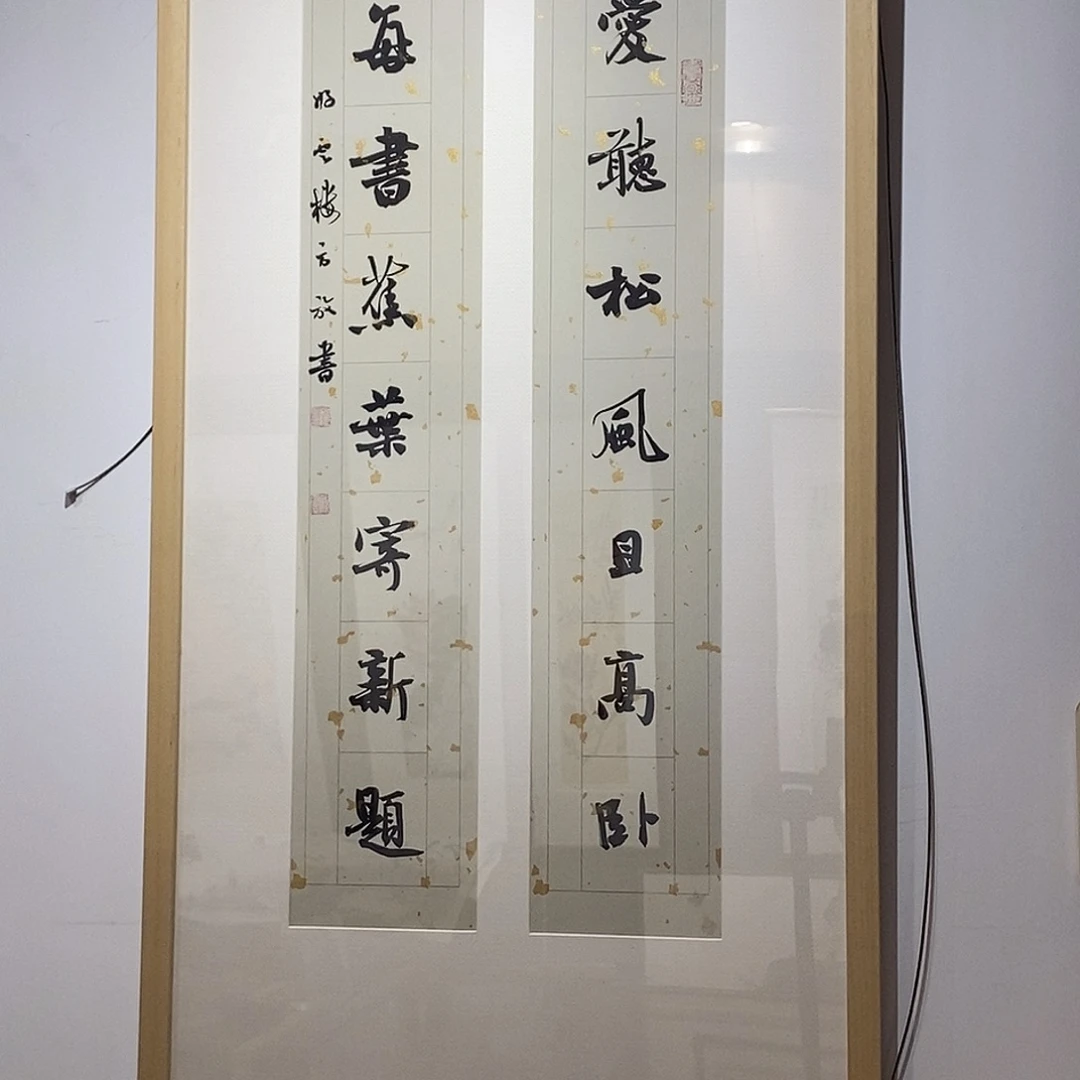 愛聽松風且高卧
每書蕉葉寄新題
好雲樓方放書